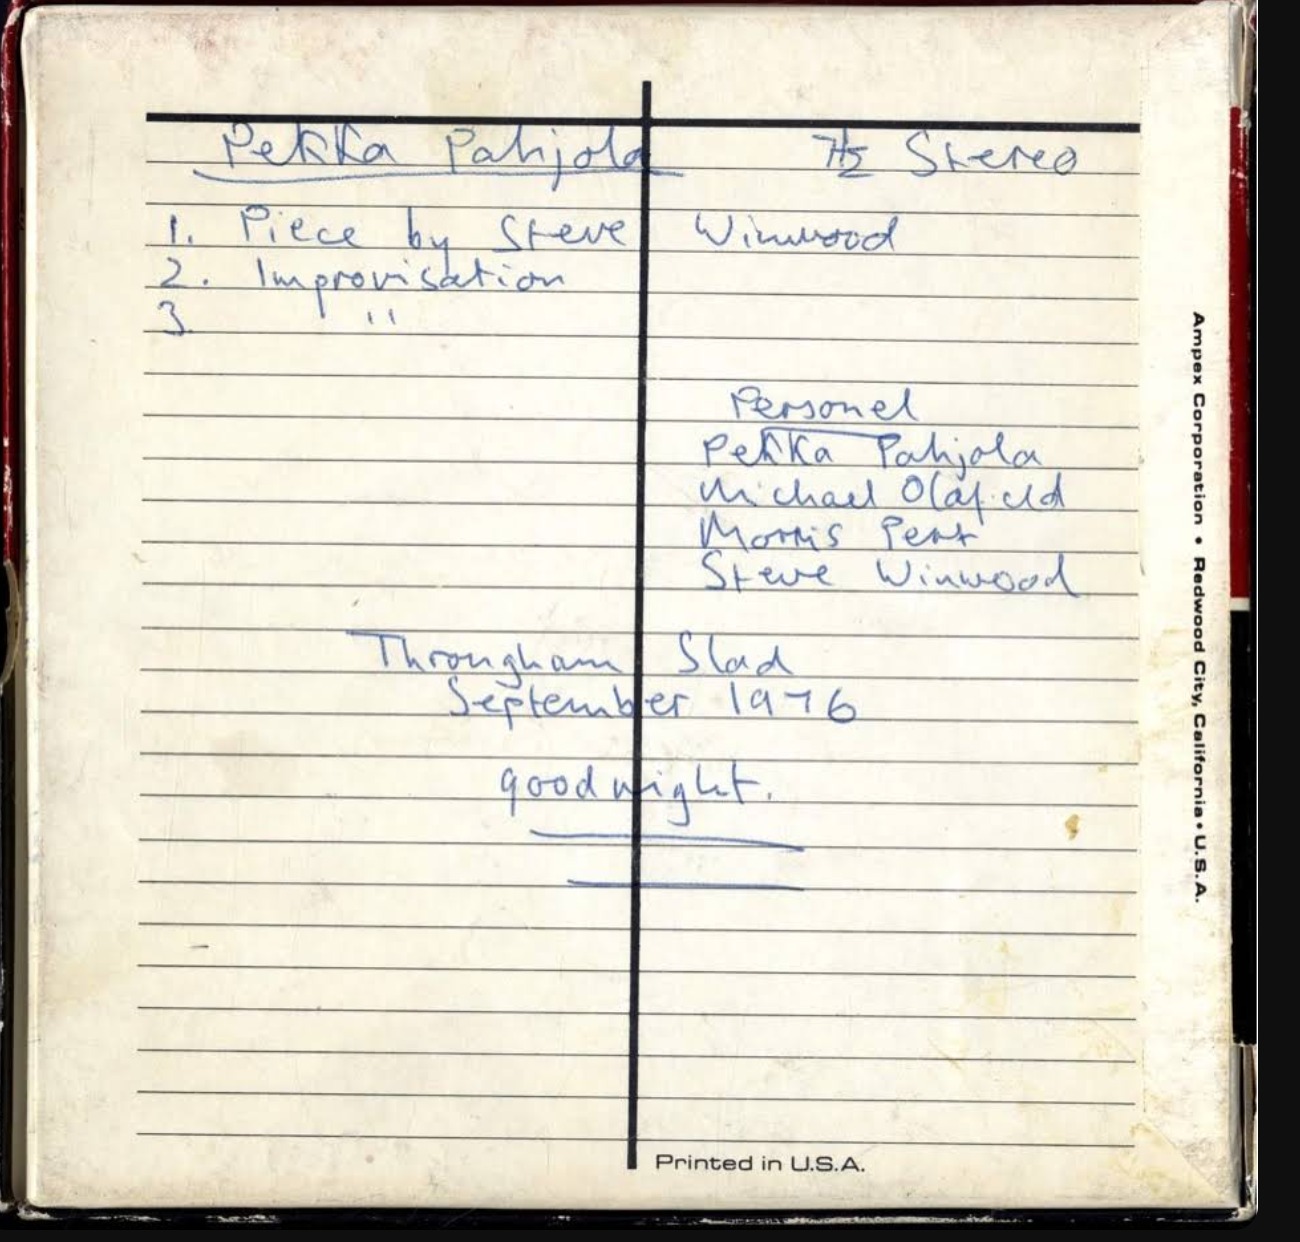 Pekka Pahjola 7½ Stereo
1. Piece by Steve Winwood
2. Improvisation
3. "
Personel
Pekka Pahjola
Michael Olafield
Morris Pert
Steve Winwood
Througham Slad
September 1976
goodnight.
Printed in U.S.A.
Ampex Corporation • Redwood City, California • U.S.A.